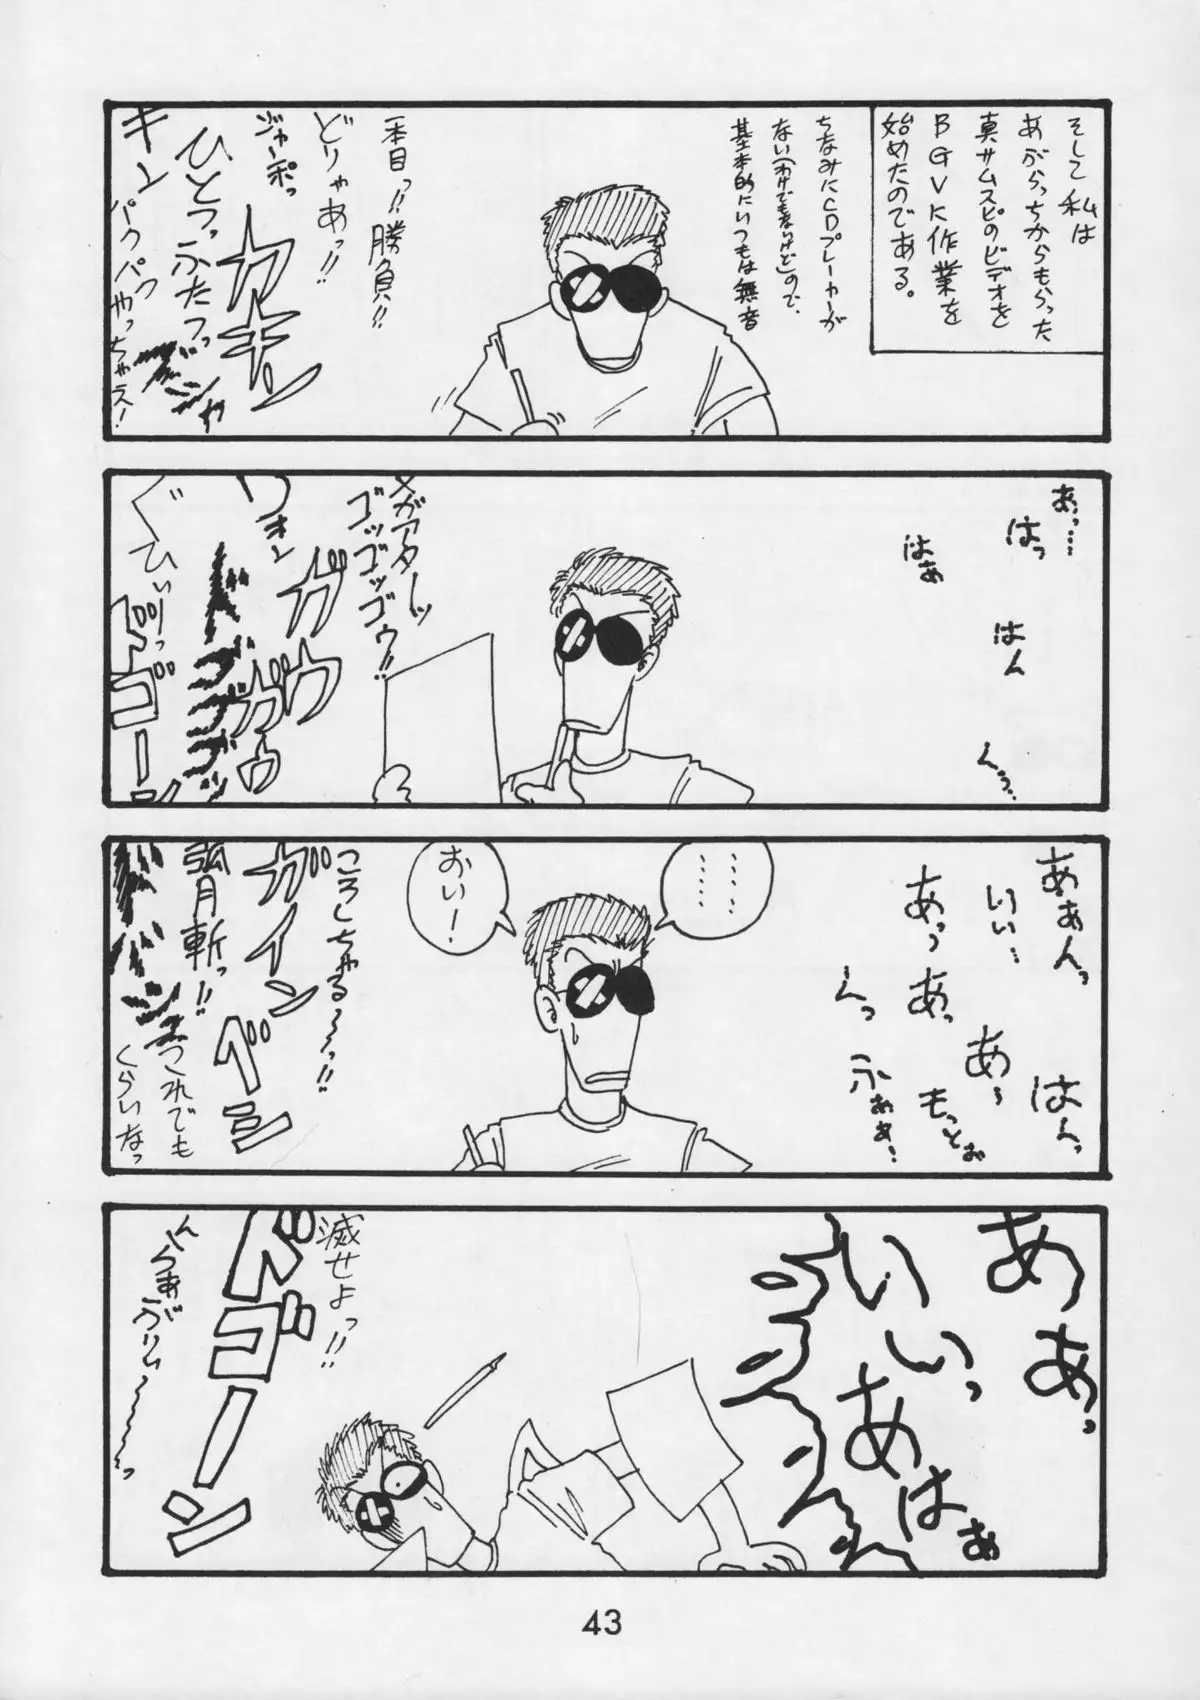 そして私は
あがらっちからもらった
真サムスピのビデオを
BGVに作業を
始めたのである。
ちなみにCDプレーヤーが
ない(わけでもないけど)ので、
基本的にいつもは無音
一本目っ!!
勝負!!
どりゃあっ!!
ジャーポっ
カキン
ひとつっふたつっ
ズシャ
キン
パクパク
やっちゃえ!
あっ…
はっ
はぁ
はん
くぅ…
メガアターッ
ゴッゴッゴゥ!!
ガウ
ガガウ
ウォン
ぐひぃっ
ドゴーン
ああんっ
いい…
はんっ
あっ
あっ
あ~
もっとぉ
くっ
ふぁぁ!
………
おい!
ころしちゃる~~っ!!
ガイン
ベシ
弧月斬っ!!
これでも
くらいなっ
ああっ
いいっ
あはぁ
滅せよっ!!
ドゴーン
43